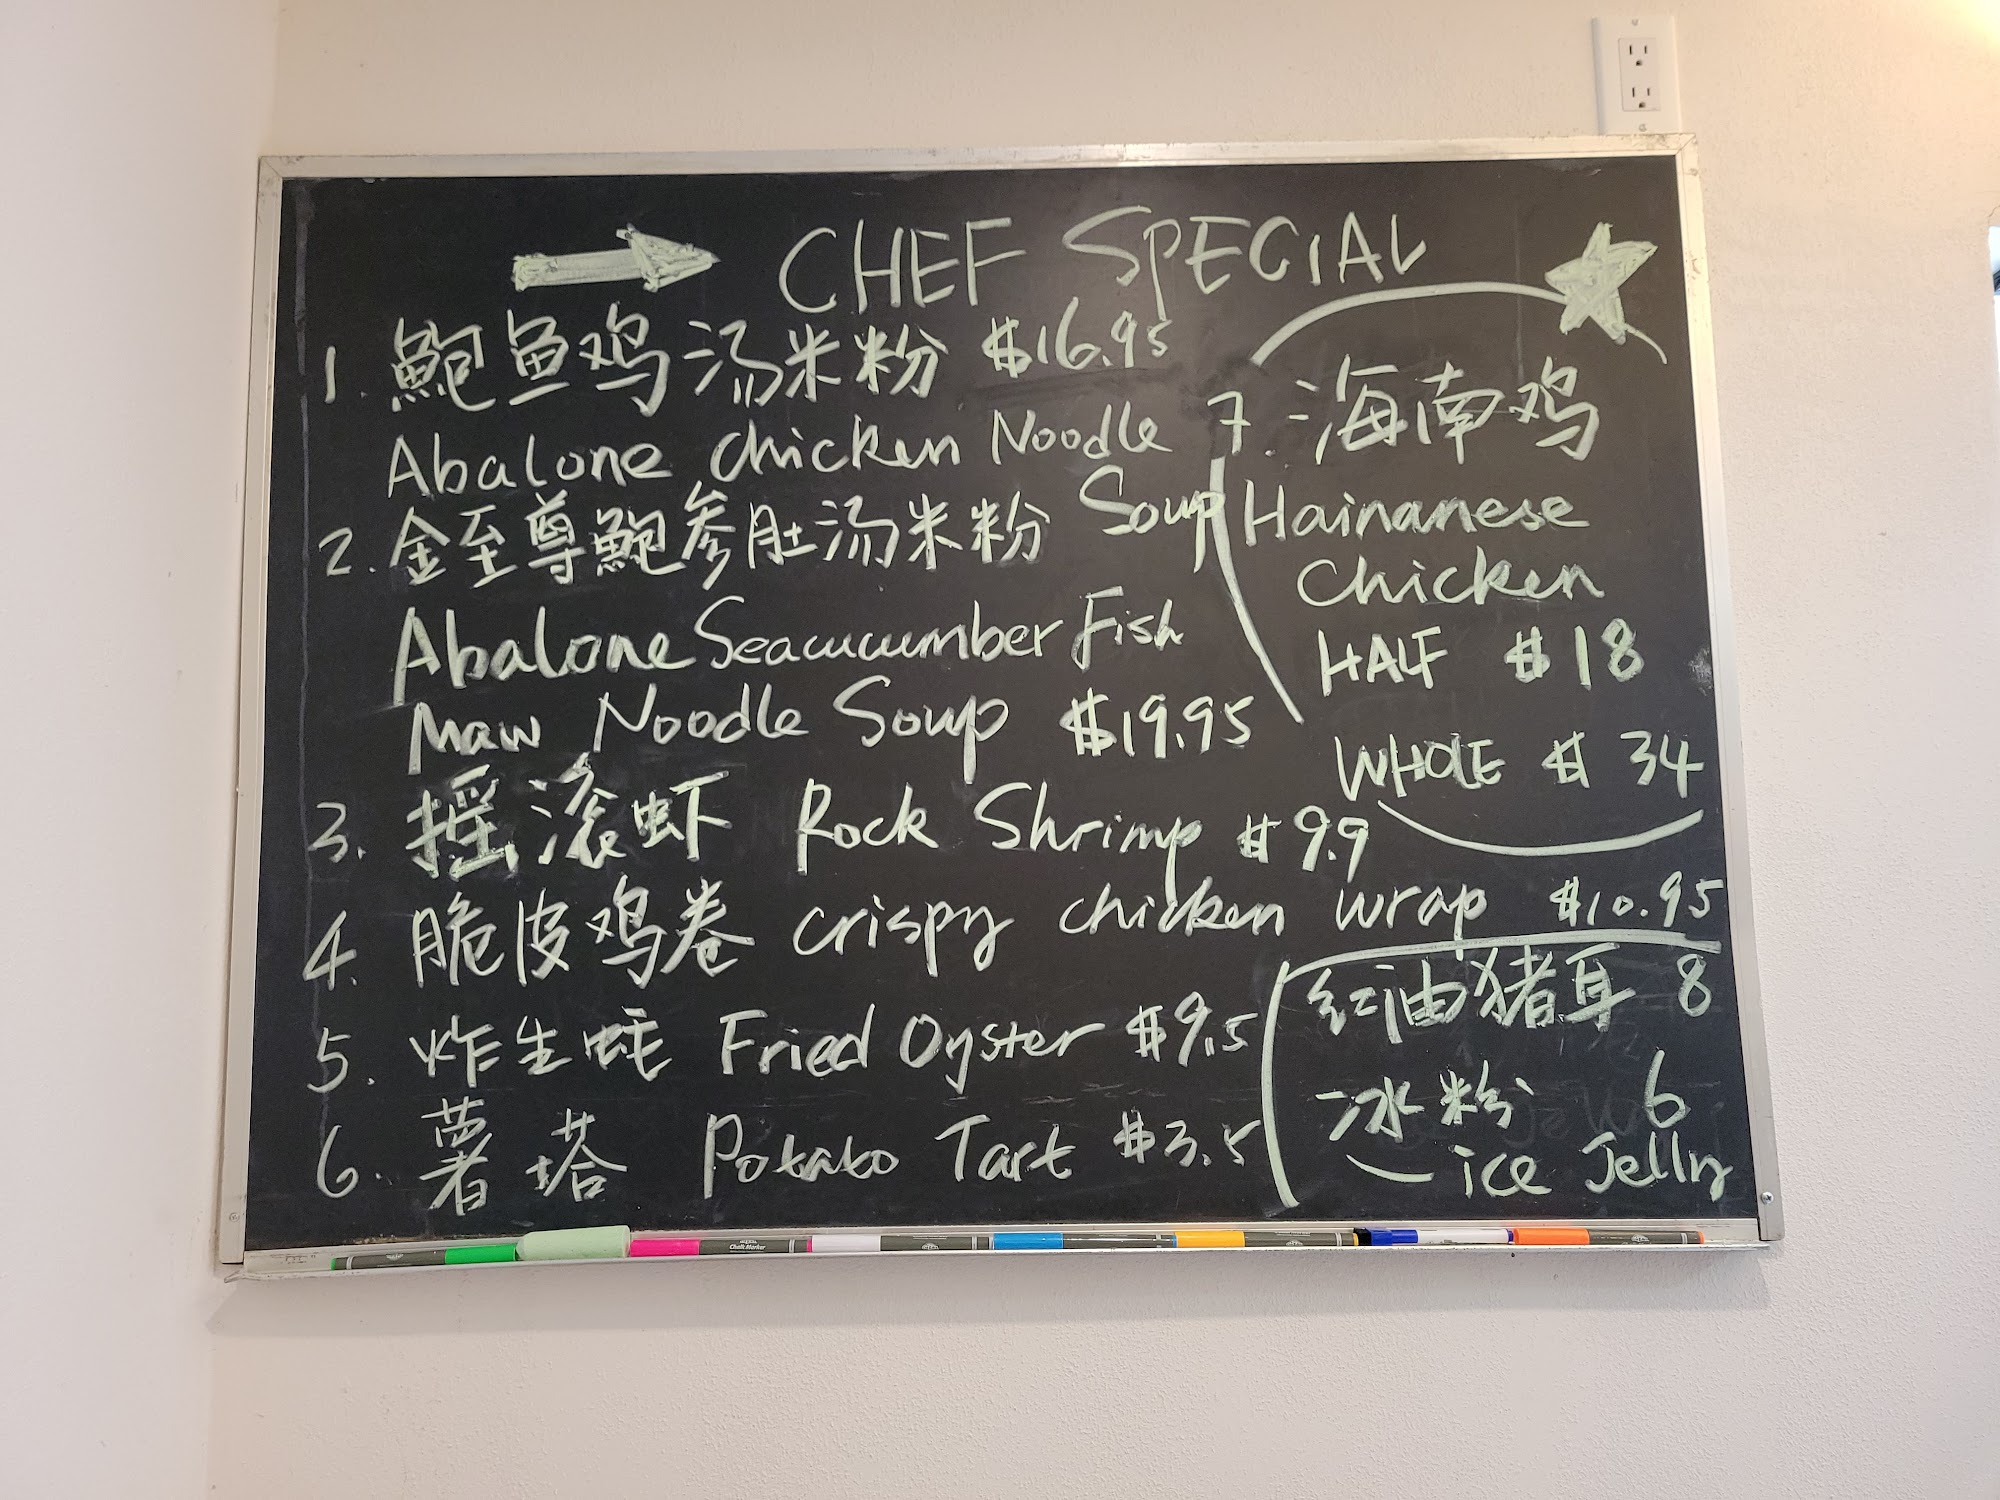 CHEF SPECIAL
1. 鲍鱼鸡汤米粉 $16.95
Abalone chicken Noodle Soup
2. 金至尊鲍参肚汤米粉
Abalone Seacucumber Fish
Maw Noodle Soup $19.95
3. 摇滚虾 Rock Shrimp $9.9
4. 脆皮鸡卷 crispy chicken wrap $10.95
5. 炸生蚝 Fried Oyster $9.5
6. 薯塔 Potato Tart $3.5
7. 海南鸡
Hainanese
Chicken
HALF $18
WHOLE $34
红油猪耳 8
冰粉 6
ice Jelly